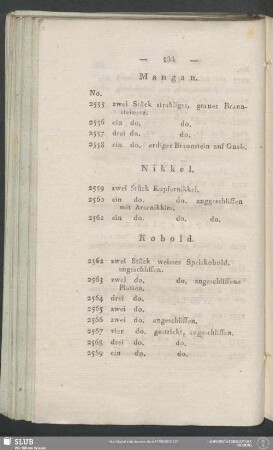 — 134 —
Mangan.
No.
2555 zwei Stück strahliger, grauer Braun-
steinerz.
2556 ein do. do.
2557 drei do. do.
2558 ein do. erdiger Braunstein auf Gneis.
Nikkel.
2559 zwei Stück Kupfernikkel.
2560 ein do. do. angeschliffen
mit Arseniknikkel.
2561 ein do. do. do.
Kobold.
2562 zwei Stück weisses Speiskobold,
angeschliffen.
2563 zwei do. do. angeschliffene
Platten.
2564 drei do.
2565 zwei do.
2566 zwei do. angeschliffen.
2567 vier do. gestrickt, angeschliffen.
2568 drei do. do.
2569 ein do. do.
SLUB
Wir führen Wissen.